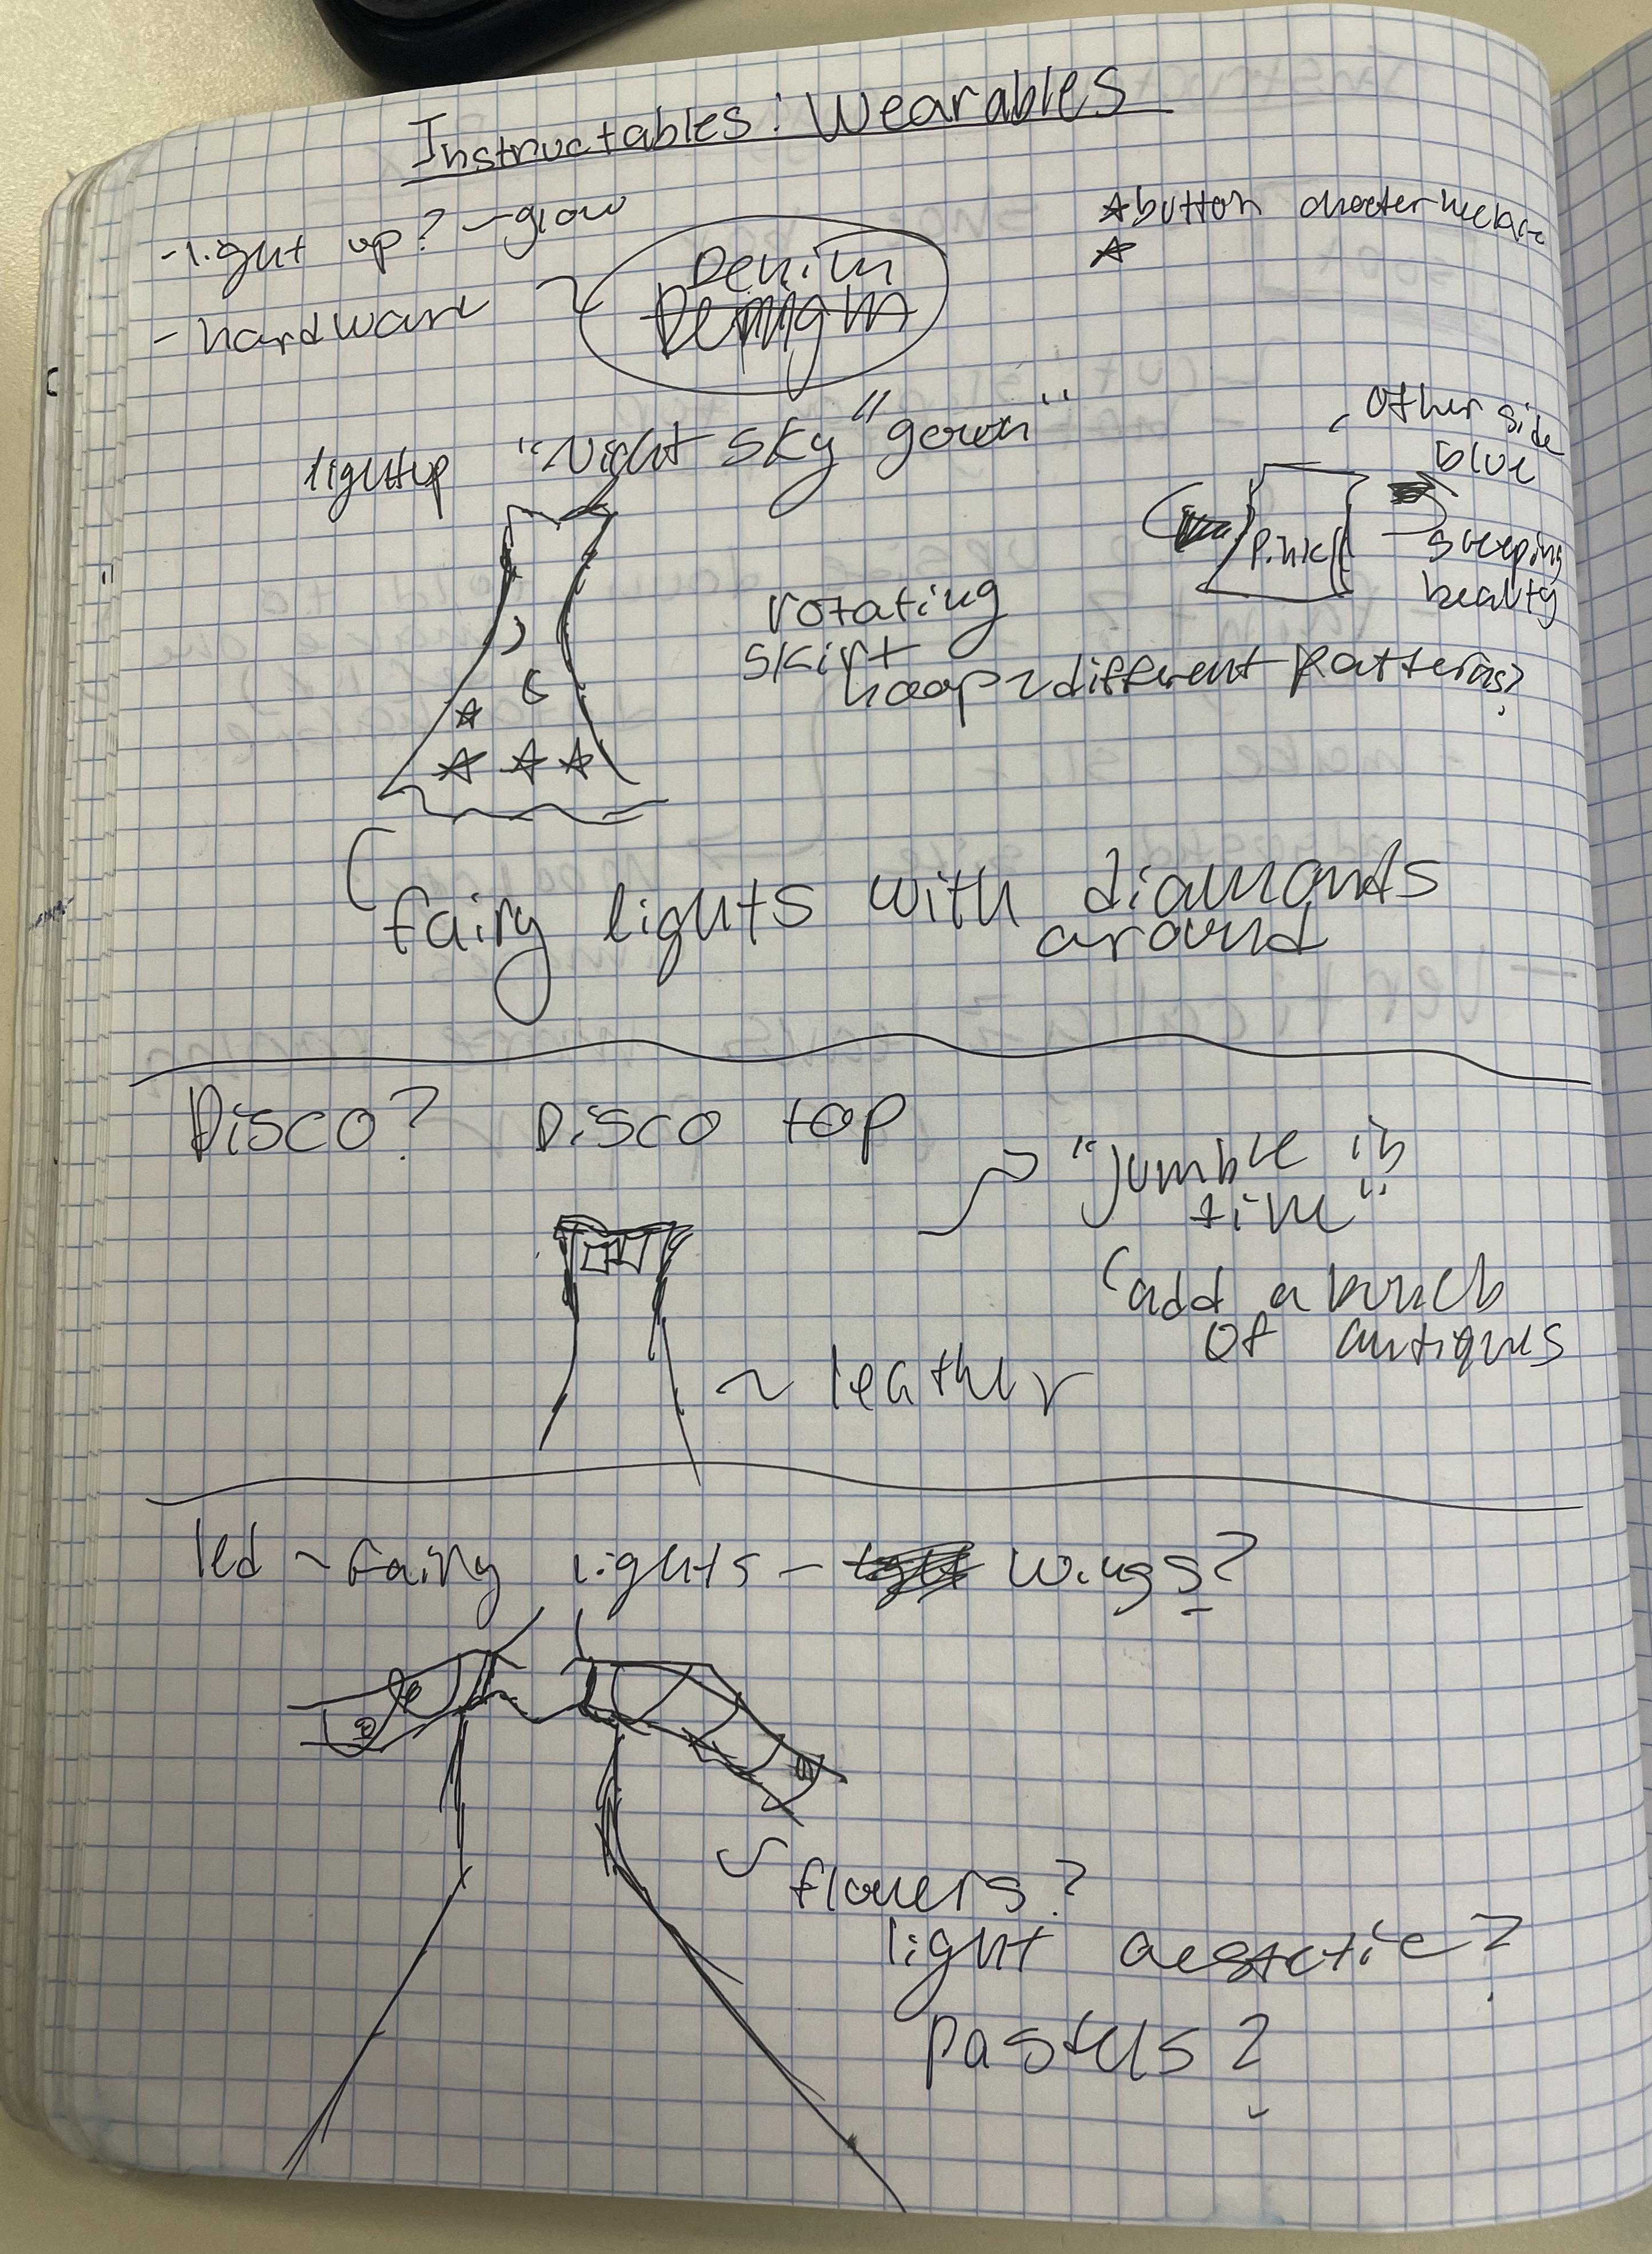 Instructables: Wearables
-light up? -glow
- hardware ~
Denim
★button
★
lightup "Night sky" gown"
other side
blue
Pink
sleeping
beauty
rotating
skirt
hoop ~ different patterns?
fairy lights with diamonds
around
Disco? Disco top
"Jumble in
time"
add a bunch
of antiques
~ leather
led ~ fairy lights - wings?
flowers?
light aestetic?
pastels?